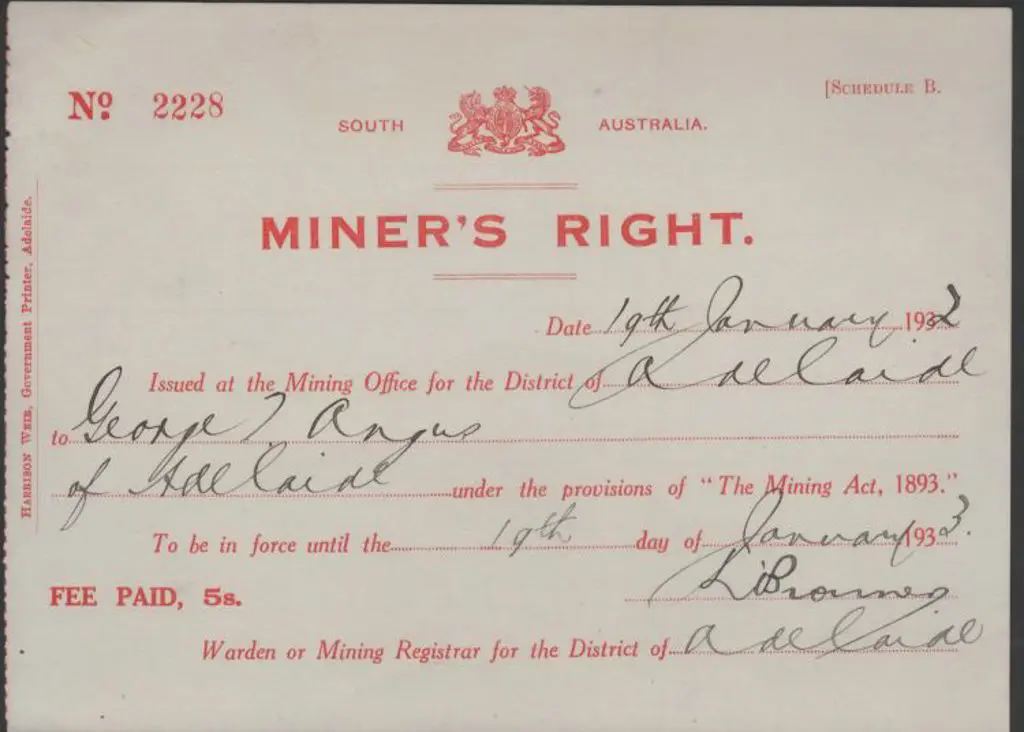 Nº 2228
[SCHEDULE B.
SOUTH AUSTRALIA.
MINER'S RIGHT.
Date 19th January 1932
Issued at the Mining Office for the District of Adelaide
to George T Angus
of Adelaide under the provisions of "The Mining Act, 1893."
To be in force until the 19th day of January 1933.
FEE PAID, 5s.
Warden or Mining Registrar for the District of Adelaide
HARRISON WEIR, Government Printer, Adelaide.